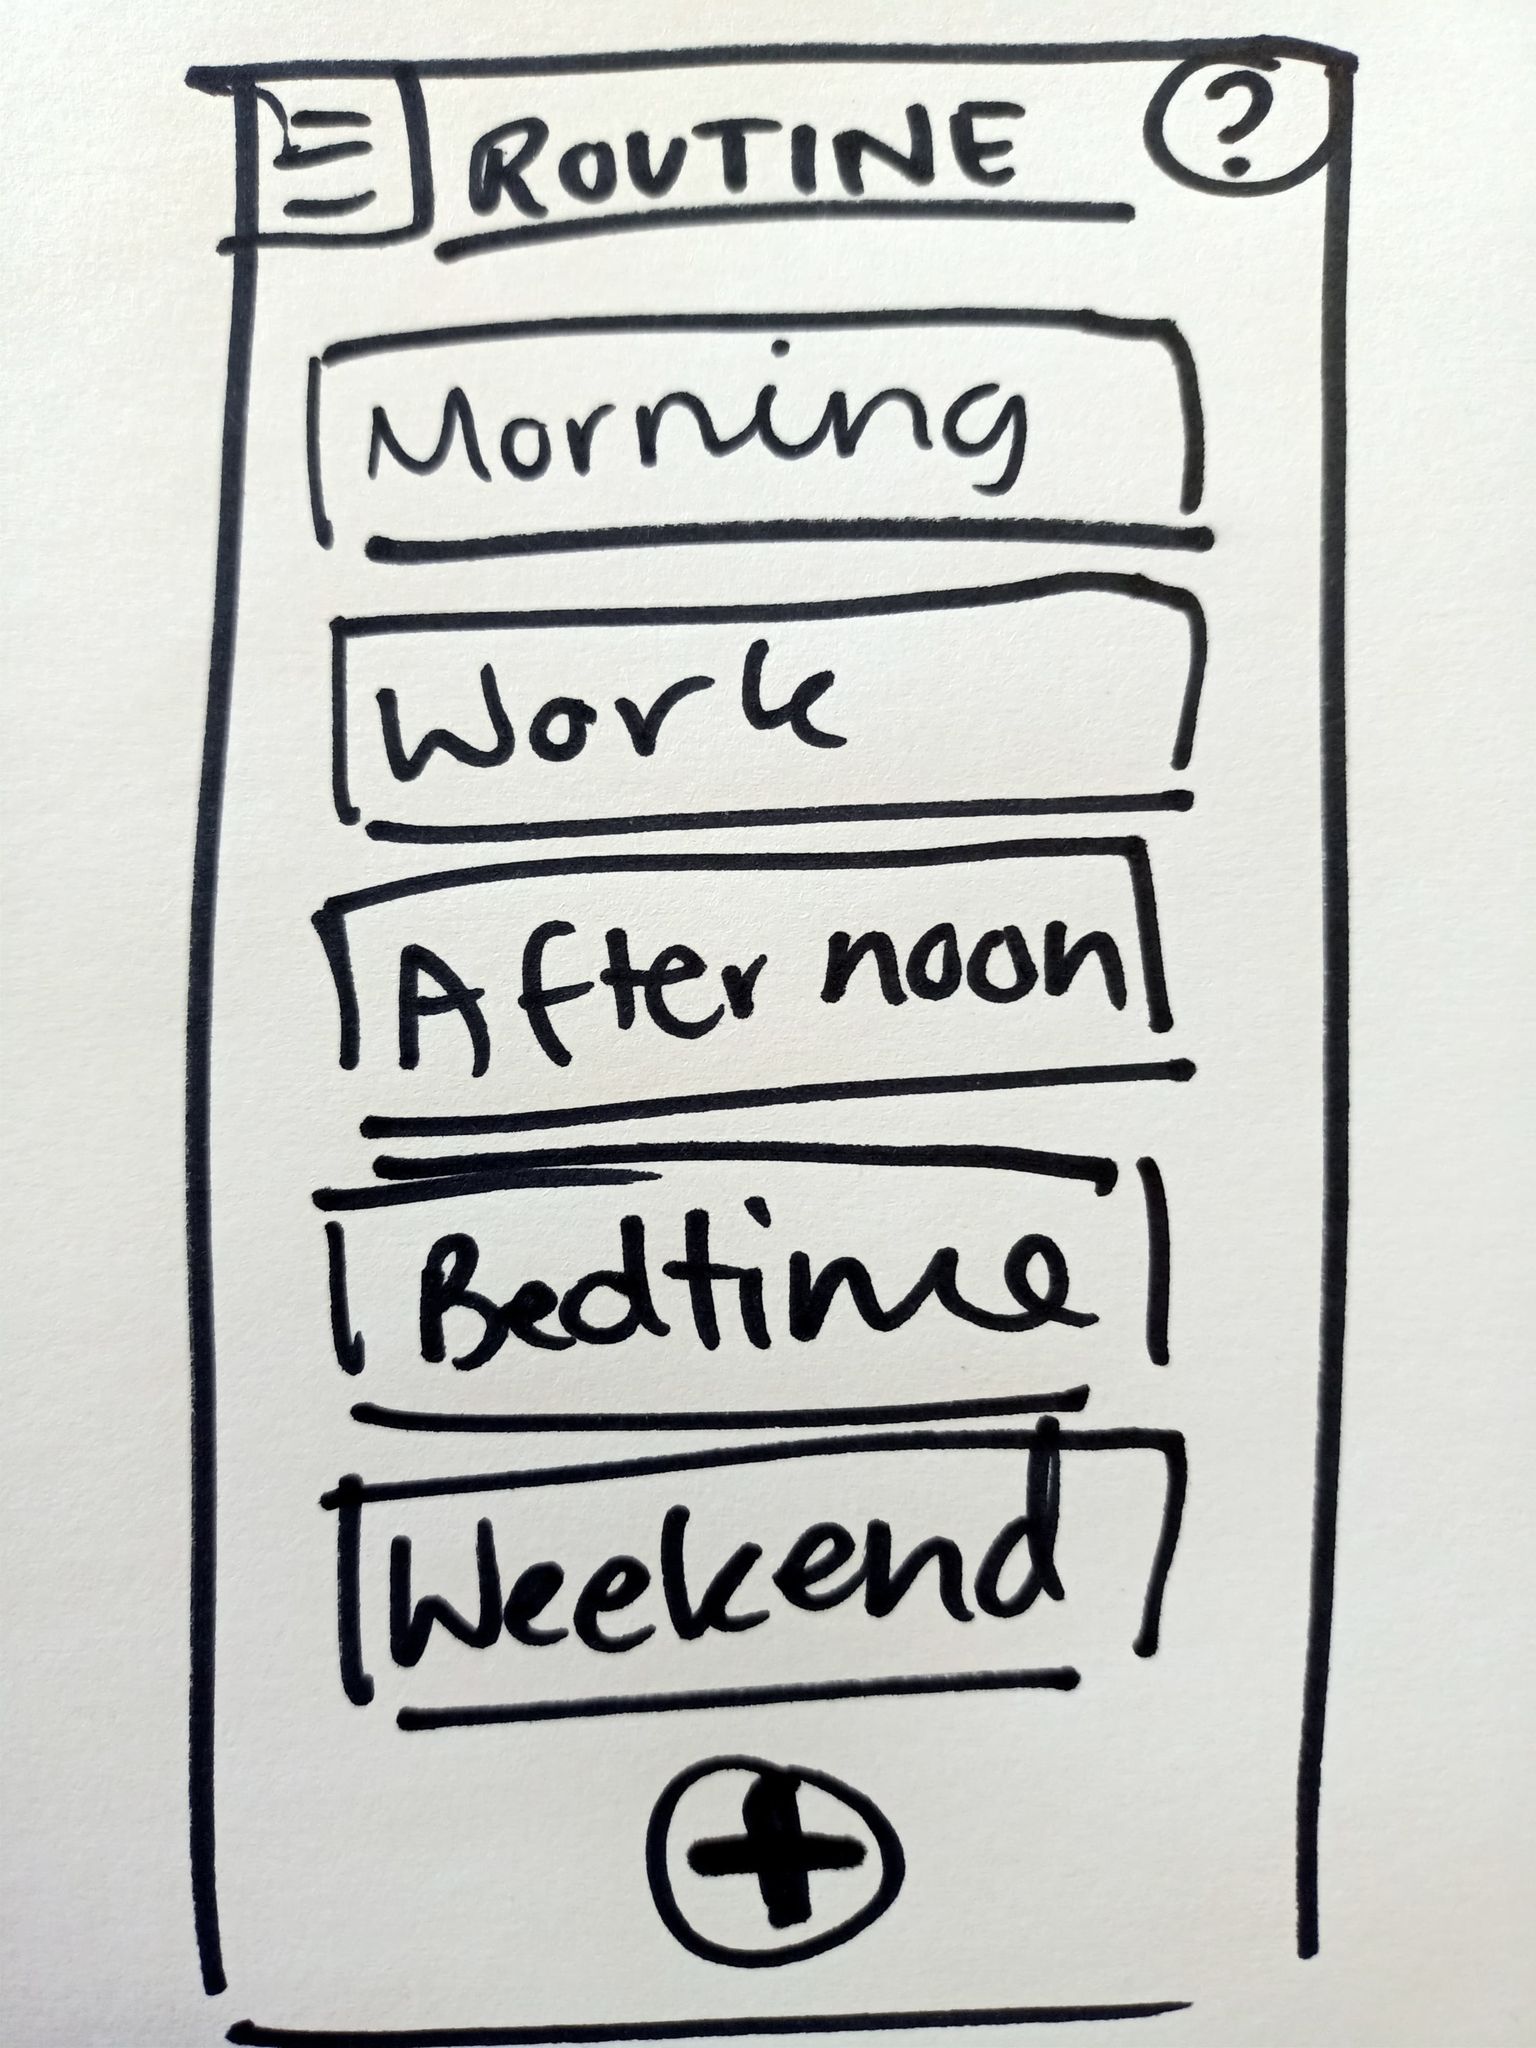 ROUTINE ?
Morning
Work
After noon
Bedtime
Weekend
+